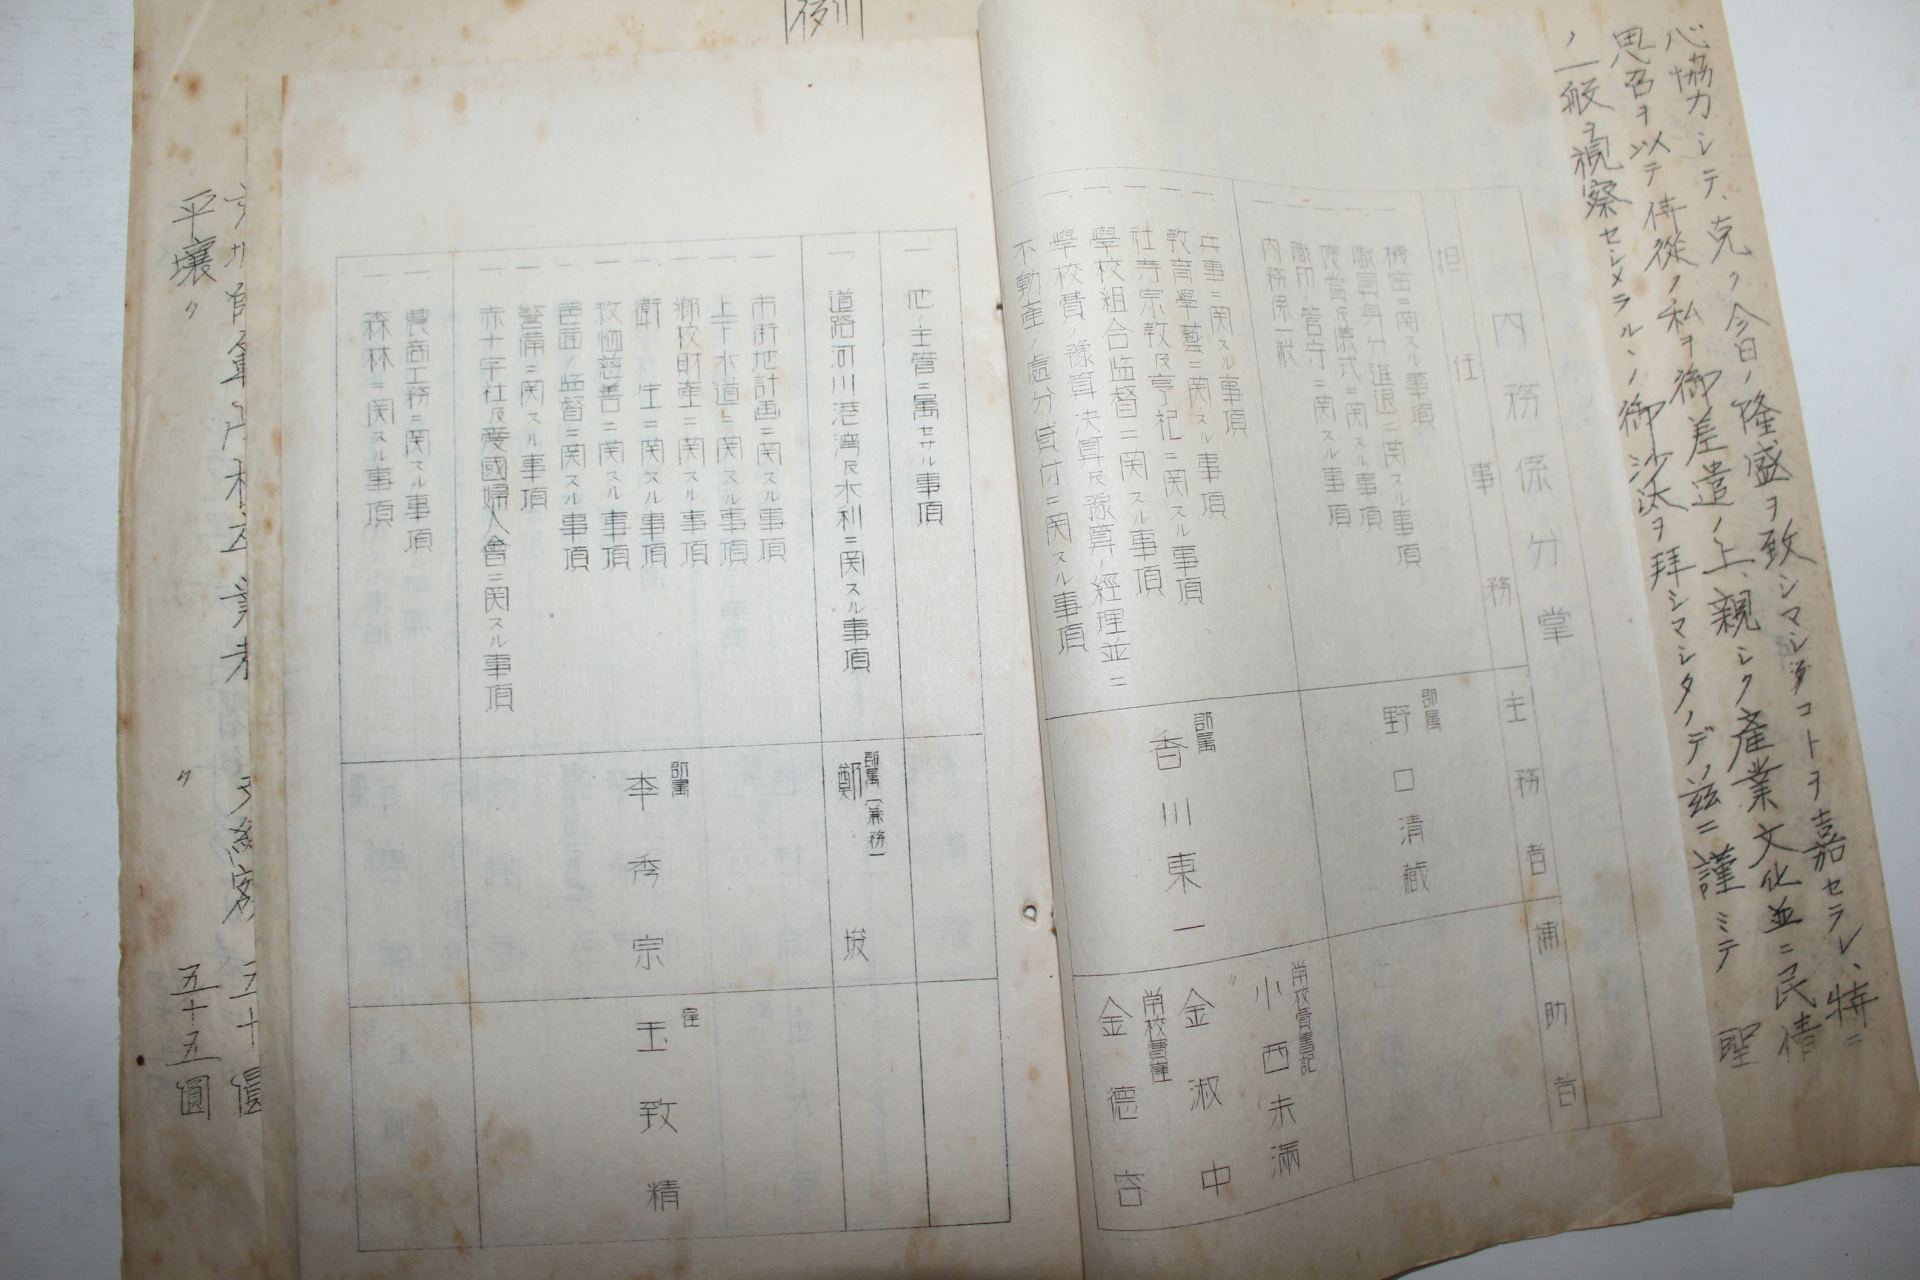 心協力シテ、克ク今日ノ隆盛ヲ致シマシタコトヲ嘉セラレ、特ニ
思召ヲ以テ侍從ノ私ヲ御差遣ノ上、親シク産業文化並ニ民情
ノ一般ヲ視察セシメラルノ御沙汰ヲ拜シマシタノデ、茲ニ謹ミテ 聖
内務係分掌
担任事務
主務者
補助者
一 機密ニ関スル事項
一 職員身分進退ニ関スル事項
一 褒賞及儀式ニ関スル事項
一 職印ノ管守ニ関スル事項
一 内務係一般
郡属
野口清蔵
一 兵事ニ関スル事項
一 教育學藝ニ関スル事項
一 社寺宗教及享祀ニ関スル事項
一 學校組合監督ニ関スル事項
一 學校費ノ豫算決算及豫算ノ經理並ニ
不動産ノ處分貸付ニ関スル事項
郡属
香川東一
学校費書記
小西未滿
〃
金淑中
学校費雇
金德容
一 他ノ主管ニ属セサル事項
一 道路河川港湾及水利ニ関スル事項
郡属(兼務)
鄭 埈
一 市街地計画ニ関スル事項
一 上下水道ニ関スル事項
一 鄉校財産ニ関スル事項
一 衛生ニ関スル事項
一 救恤慈善ニ関スル事項
一 邑面ノ監督ニ関スル事項
一 警備ニ関スル事項
一 赤十字社及愛國婦人會ニ関スル事項
郡属
李秀宗
雇
玉致精
一 農商工務ニ関スル事項
一 森林ニ関スル事項
五十圓
平壤 〃
〃
五十五圓